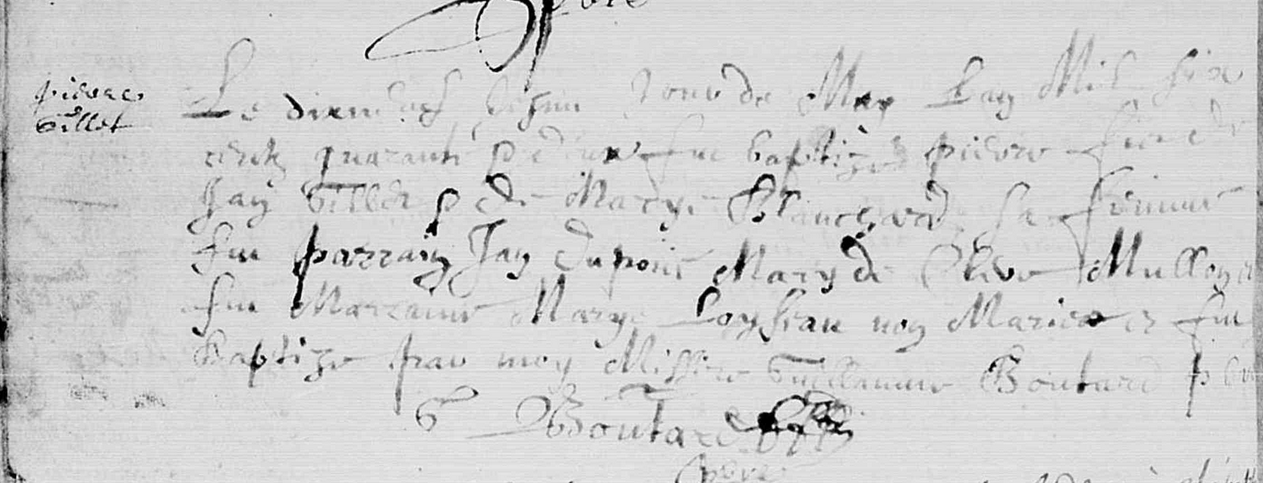 pierre
Gillet
Le dixneufiesme Jour de May Lan Mil six
cents quarante & deux fut baptizé pierre fils de
Jan Gillet & de Marye Blanchard sa femme
fut parrain Jan dupont Mary de Mullon
fut Marraine Marye Loyseau non Mariee et fut
baptize par moy Missire Guillaume Boutard p
G Boutard